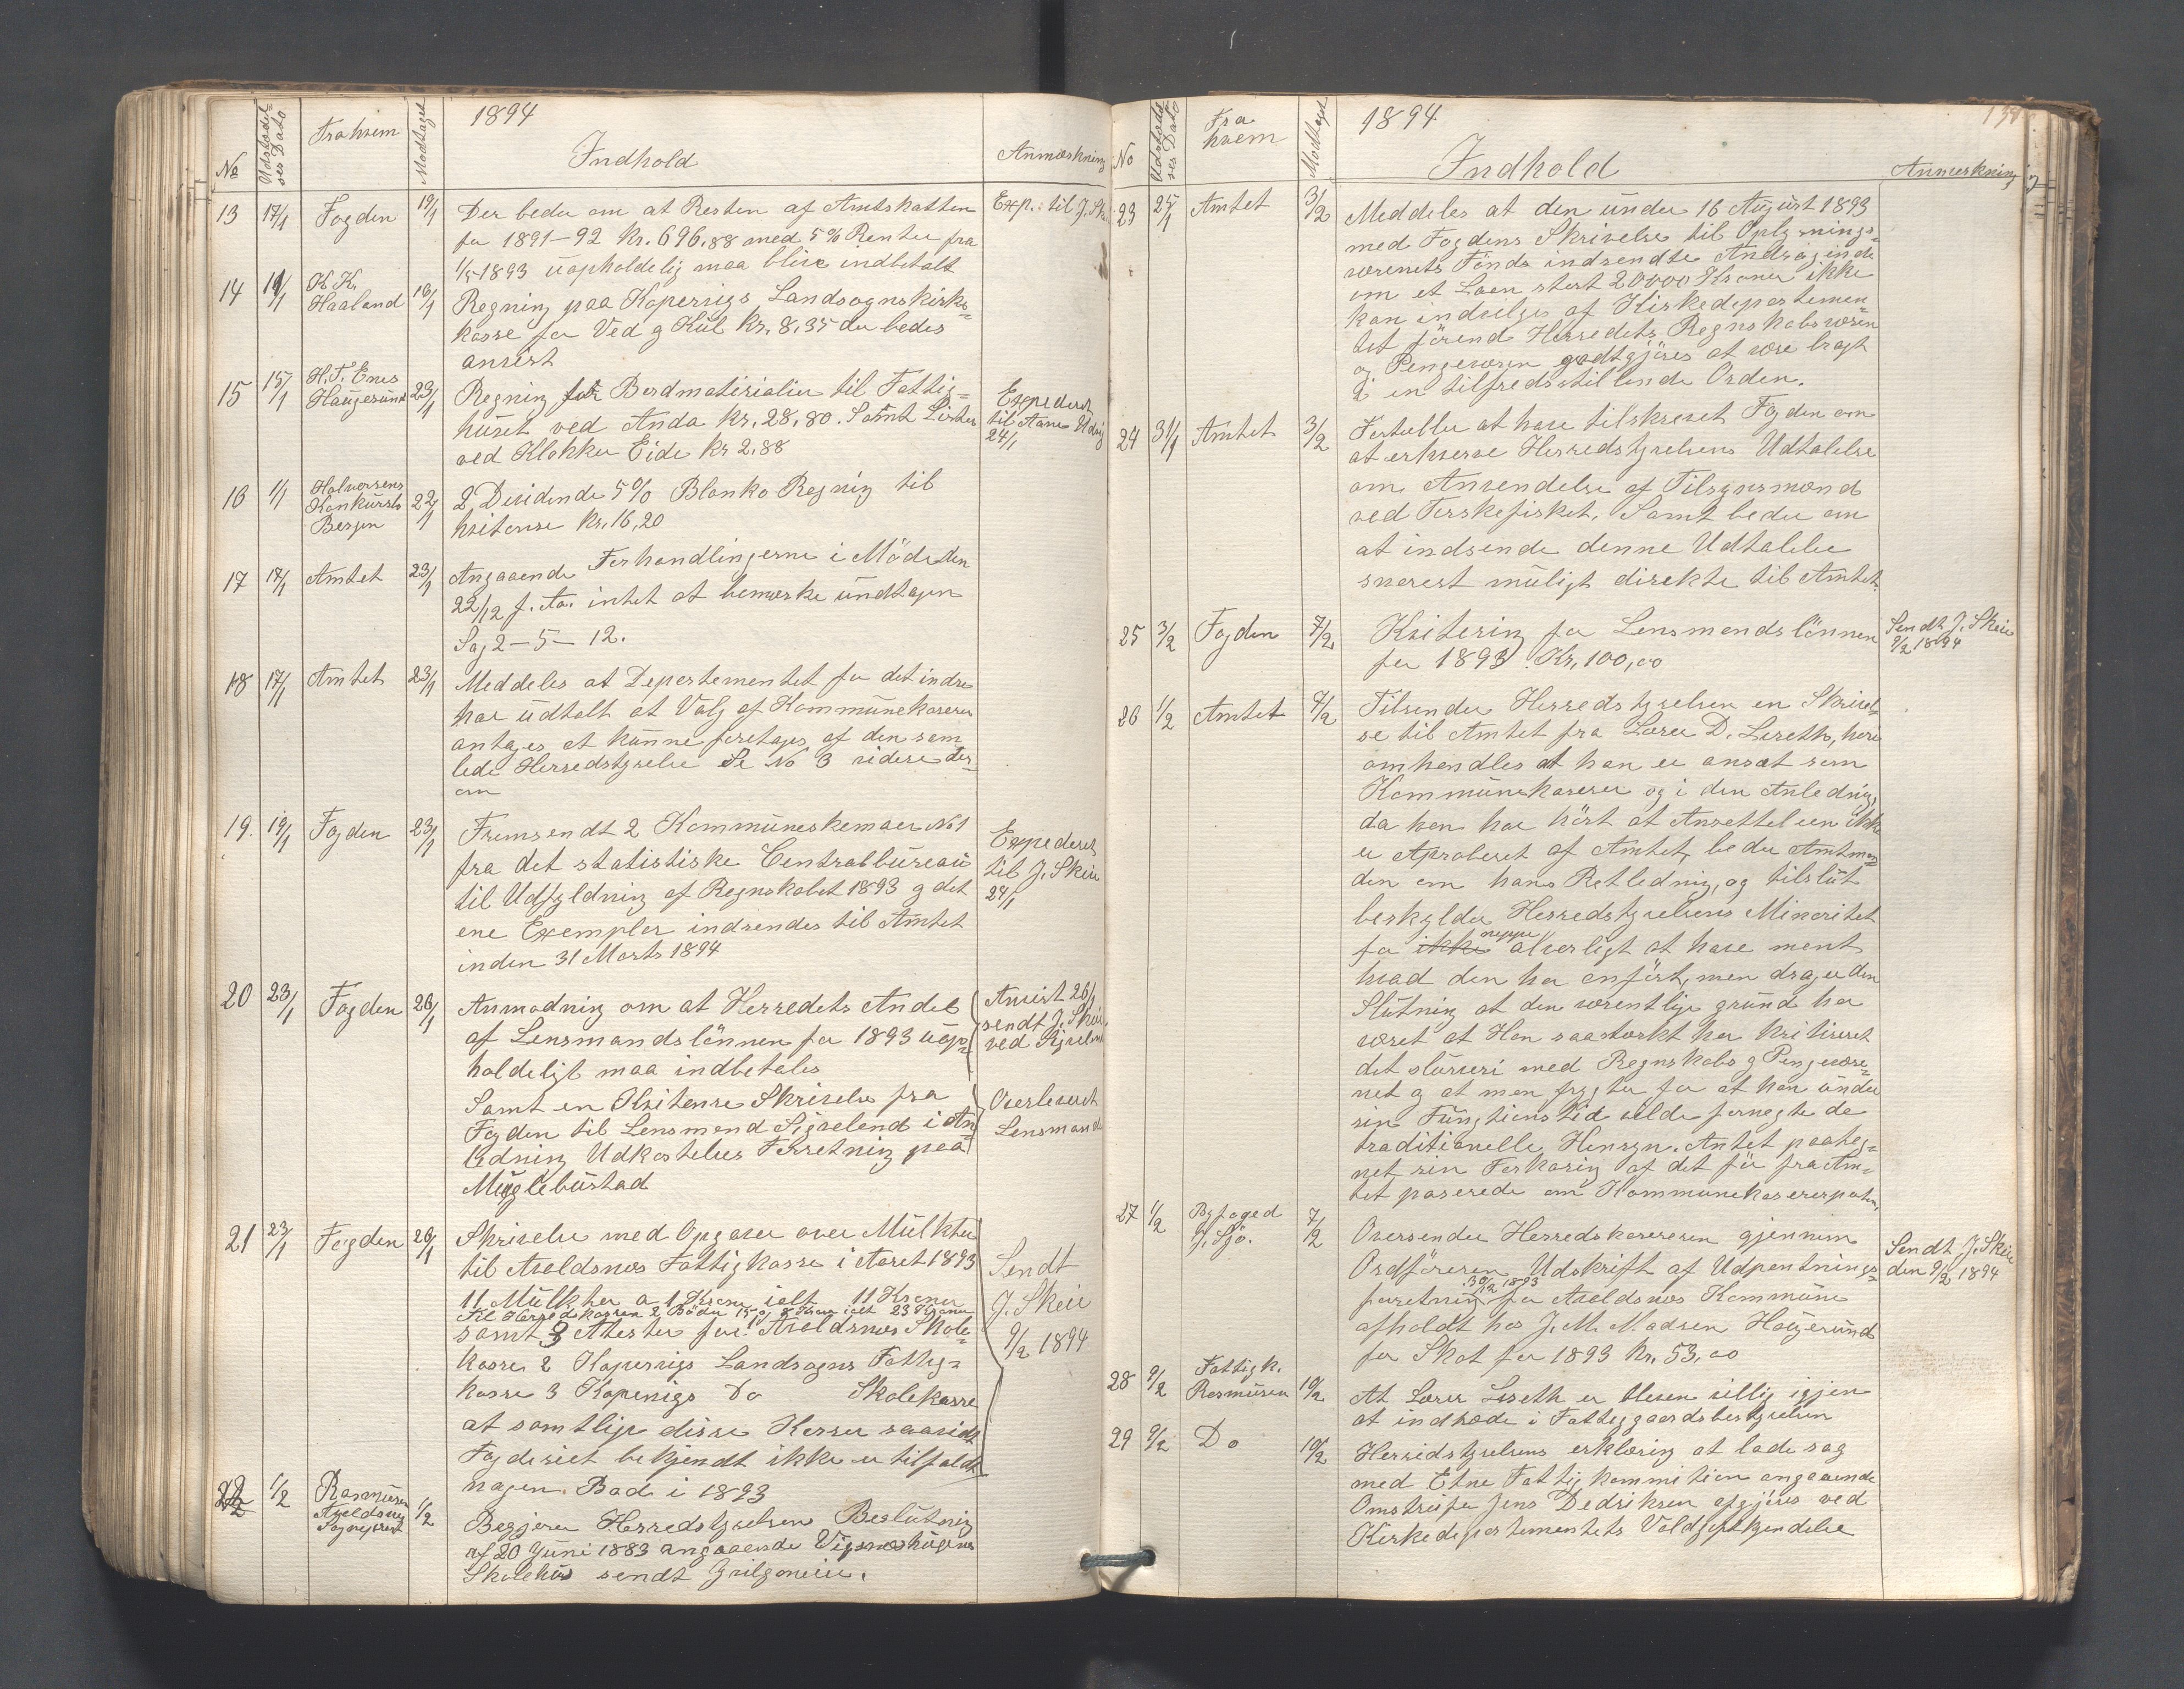 1894
No Udstedel= ses Dato Fra hvem Modtaget Indhold Anmærkning
13 17/1 Fogden 19/1 Der beder om at Resten af Amtskatten Exp. til J. Skeie
for 1891-92 Kr. 696,88 med 5% Renter fra
1/5 1893 uopholdelig maa blive indbetalt
14 K. K. Haaland 19/1 Regning paa Kopervigs Landsognskirke=
kasse for Ved og Kul Kr. 8,35 der bedes
anvist
15 15/1 H. T. Enes Haugesund 23/1 Regning for Bordmatirialier til Fattig= Expederet
huset ved Anda Kr. 28,80. Samt Lister til Aane
ved Klokker Eide Kr 2,88 24/1
16 1/1 Halvorsens Konkursbo Bergen 22/1 2 Devidende 5% Blanko Regning til
kvitense Kr. 16,20
17 17/1 Amtet 23/1 Angaaende Forhandlingerne i Möde den
22/12 f. Aa. intet at bemærke undtagen
Sag 2-5-12.
18 17/1 Amtet 23/1 Meddeles at Departementet for det indre
har udtalt at Valg af Kommunekaserer
antages at kunne foretages af den sam
lede Herredstyrelse Se No 3 videre der=
om
19. 19/1 Fogden 23/1 Fremsendt 2 Kommuneskemaer No 1 Expederet
fra det statistiske Centralbureau til J. Skeie
til Udfyldning af Regnskabet 1893 og det 24/1
ene Exempler indsendes til Amtet
inden 31 Marts 1894
20 23/1 Fogden 26/1 Anmodning om at Herredets Andel Anvist 26/1
af Lensmandslönnen for 1893 uop= sendt J. Skeie
holdeligt maa indbetales ved
Samt en Kvitense Skrivelse fra Overleveret
Fogden til Lensmand Sigveland i An Lensmand
ledning Udkastelses Forretning paa
Muglebustad
21 23/1 Fogden 26/1 Skrivelse med Opgaver over Mulkter
til Avaldsnes Fattigkasse i Aaret 1893 Sendt
11 Mulkter a 1 Krone ialt 11 Kroner J. Skeie
Til Herredskassen 2 Böder 15 og 8 Kroner ialt 23 Kroner
samt 3 Atester for 1 Avaldsnes Skole= 9/2 1894
kasse 2 Kopervigs Landsogns Fattig=
kasse 3 Kopervigs Do Skolekasse
at samtlige disse Kasser saavidt
Fogderiet bekjendt ikke er tilfaldt
nogen Bod i 1893
22 1/2 Rasmussen Avaldsnes Sogneprest 1/2 Begjærer Herredstyrelsen Beslutning
af 20 Juni 1883 angaaende Vigsneshugene
Skolehus sendt
1894
No Udstedel= ses Dato Fra hvem Modtaget Indhold Anmerkning
23 25/1 Amtet 3/2 Meddeles at den under 16 August 1893
med Fogdens Skrivelse til Oplysnings=
væsenets Fonds indsendte Andragende
om et Laan stort 20000 Kroner ikke
kan indvilges af Kirkedepartemen=
tet förend Herredets Regnskabsvæsen
og Pengevæsen godtgjöres at være bragt
i en tilfredsstillende Orden.
24 31/1 Amtet 3/2 Fortæller at have tilskrevet Fogden om
at erhverve Herredstyrelsens Udtalelse
om Anvendelse af Tilsynsmænd
ved Torskefisket. Samt beder om
at indsende denne Udtalelse
snarest muligt direkte til Amtet.
25 3/2 Fogden 7/2 Kvitering for Lensmandslönnen Sendt J. Skeie
for 1893. Kr. 100,00 9/2 1894
26 1/2 Amtet 7/2 Tilsender Herredstyrelsen en Skrivel=
se til Amtet fra Lærer D. Liseth, hvori
omhandles at han er ansat som
Kommunekaserer og i den Anledning,
da han har hört at Ansettelsen ikke
er Aproberet af Amtet, beder Amtman
den om hans Retledning, og tilslut
beskylder Herredstyrelsens Minoritet
for ikke neppe alvorligt at have ment
hvad den har anfört, men drager den
Slutning at den væsentlige grund har
været at Han saa stærkt har kritiseret
det slurveri med Regnskabs og Pengevæse=
net og at man frygter for at han under
sin Fungtions tid vilde fornegte de
traditionelle Hensyn. Amtet paateg=
net sin Forkaring af det för fra Am=
tet paserede om Kommunekasererposten.
27 1/2 Byfoged 7/2 Oversender Herredskasereren gjennem Sendt J. Skeie
Ordföreren Udskrift af Udpantnings= den 9/2 1894
foretning 30/12 1893 for Avaldsnes Kommune
afholdt hos J. M. Madsen Haugesund
for Skat for 1893 Kr. 53,00
28 9/2 Fattigk. Rasmussen 10/2 At Lærer Liseth er bleven villig igjen
at indtræde i Fattiggaardsbestyrelsen
29 9/2 Do 10/2 Herredstyrelsens erklæring at lade sag
med Etne Fattigkommition angaaende
Omstreifer Jens Dedriksen afgjöres ved
Kirkedepartementets Voldgiftkjendelse